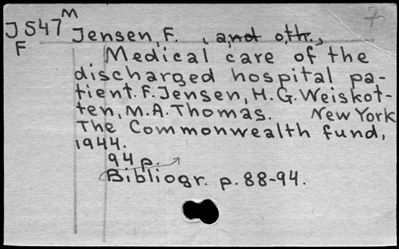 M
7
J547 Jensen, F. , and oth.,
F
Medical care of the
discharged hospital pa-
tient. F. Jensen, H.G. Weiskot-
ten, M.A. Thomas. New York
The Commonwealth fund,
1944.
94 p.
Bibliogr. p. 88-94.